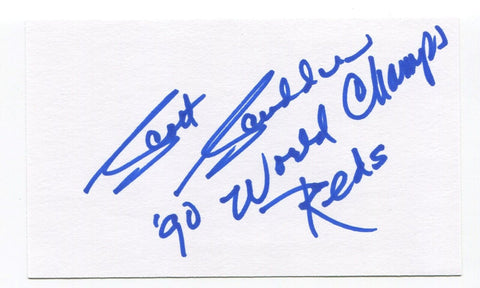 Scott Scudder
'90 World Champs
Reds